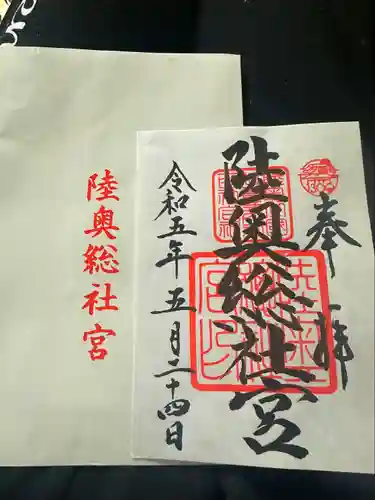 奉拝
陸奥総社宮
令和五年五月二十四日
陸奥総社宮